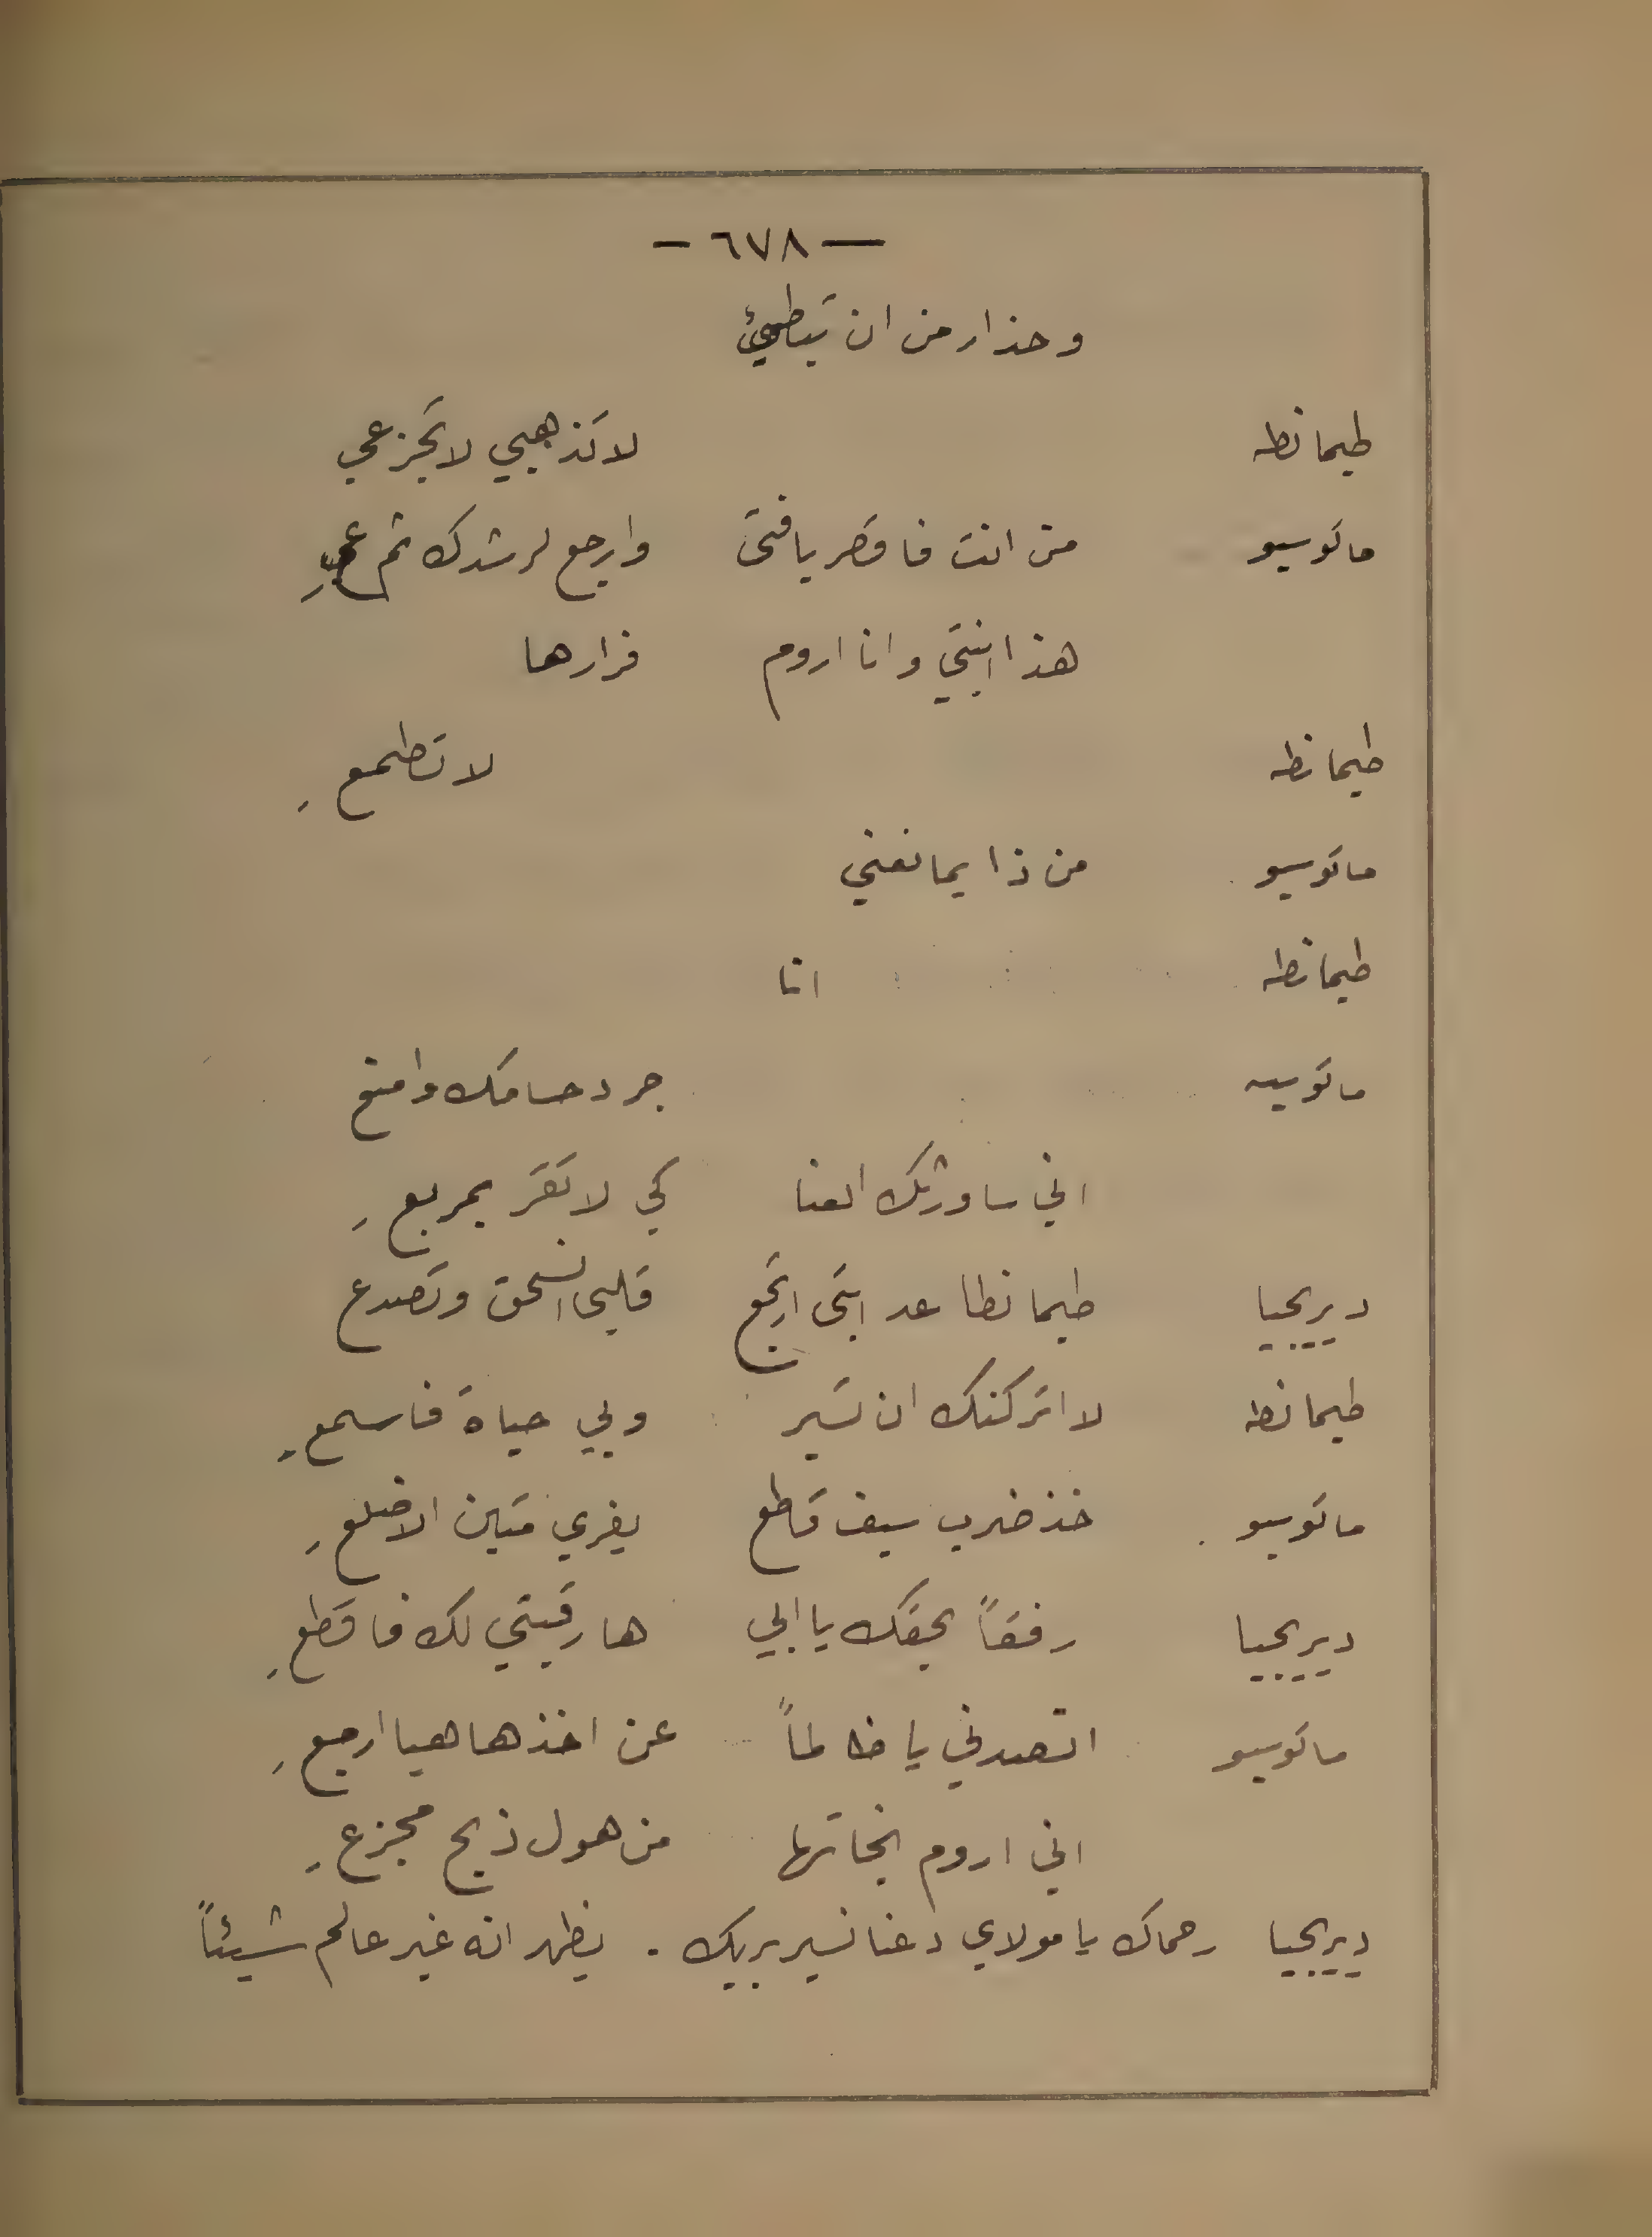 — ٦٧٨ —
وحذار من ان تبطئي
طيمانطه لا تذهبي لا تجزعي
ماتوسيو من انت فاقصر يا فتى وارجع لرشدك ثم عِ
هذا ابنتي وانا اروم فرارها
طيمانطه لا تطمعِ
ماتوسيو من ذا يمانعني
طيمانطه انا
ماتوسيه جرد حسامك وامنع
اني ساورثك العنا كي لا تقر بمربعِ
ديريجيا طيمانطا عد ابتى ارتجع قلبي انسحق وتصدع
طيمانطه لا اتركنك ان تسير وبي حياة فاسمعِ
ماتوسيو خذ ضرب سيف قاطع يفري متين الاضلعِ
ديريجيا رفقاً بحقك يا ابي ها رقبتي لك فاقطعِ
ماتوسيو اتصدني يا ظالماً عن اخذها هيا ارجعِ
اني اروم نجاتها من هول ذبح مجزعِ
ديريجيا رحماك يا مولاي دعنا نسير بربك . يظهر انه غير عالم شيئاً